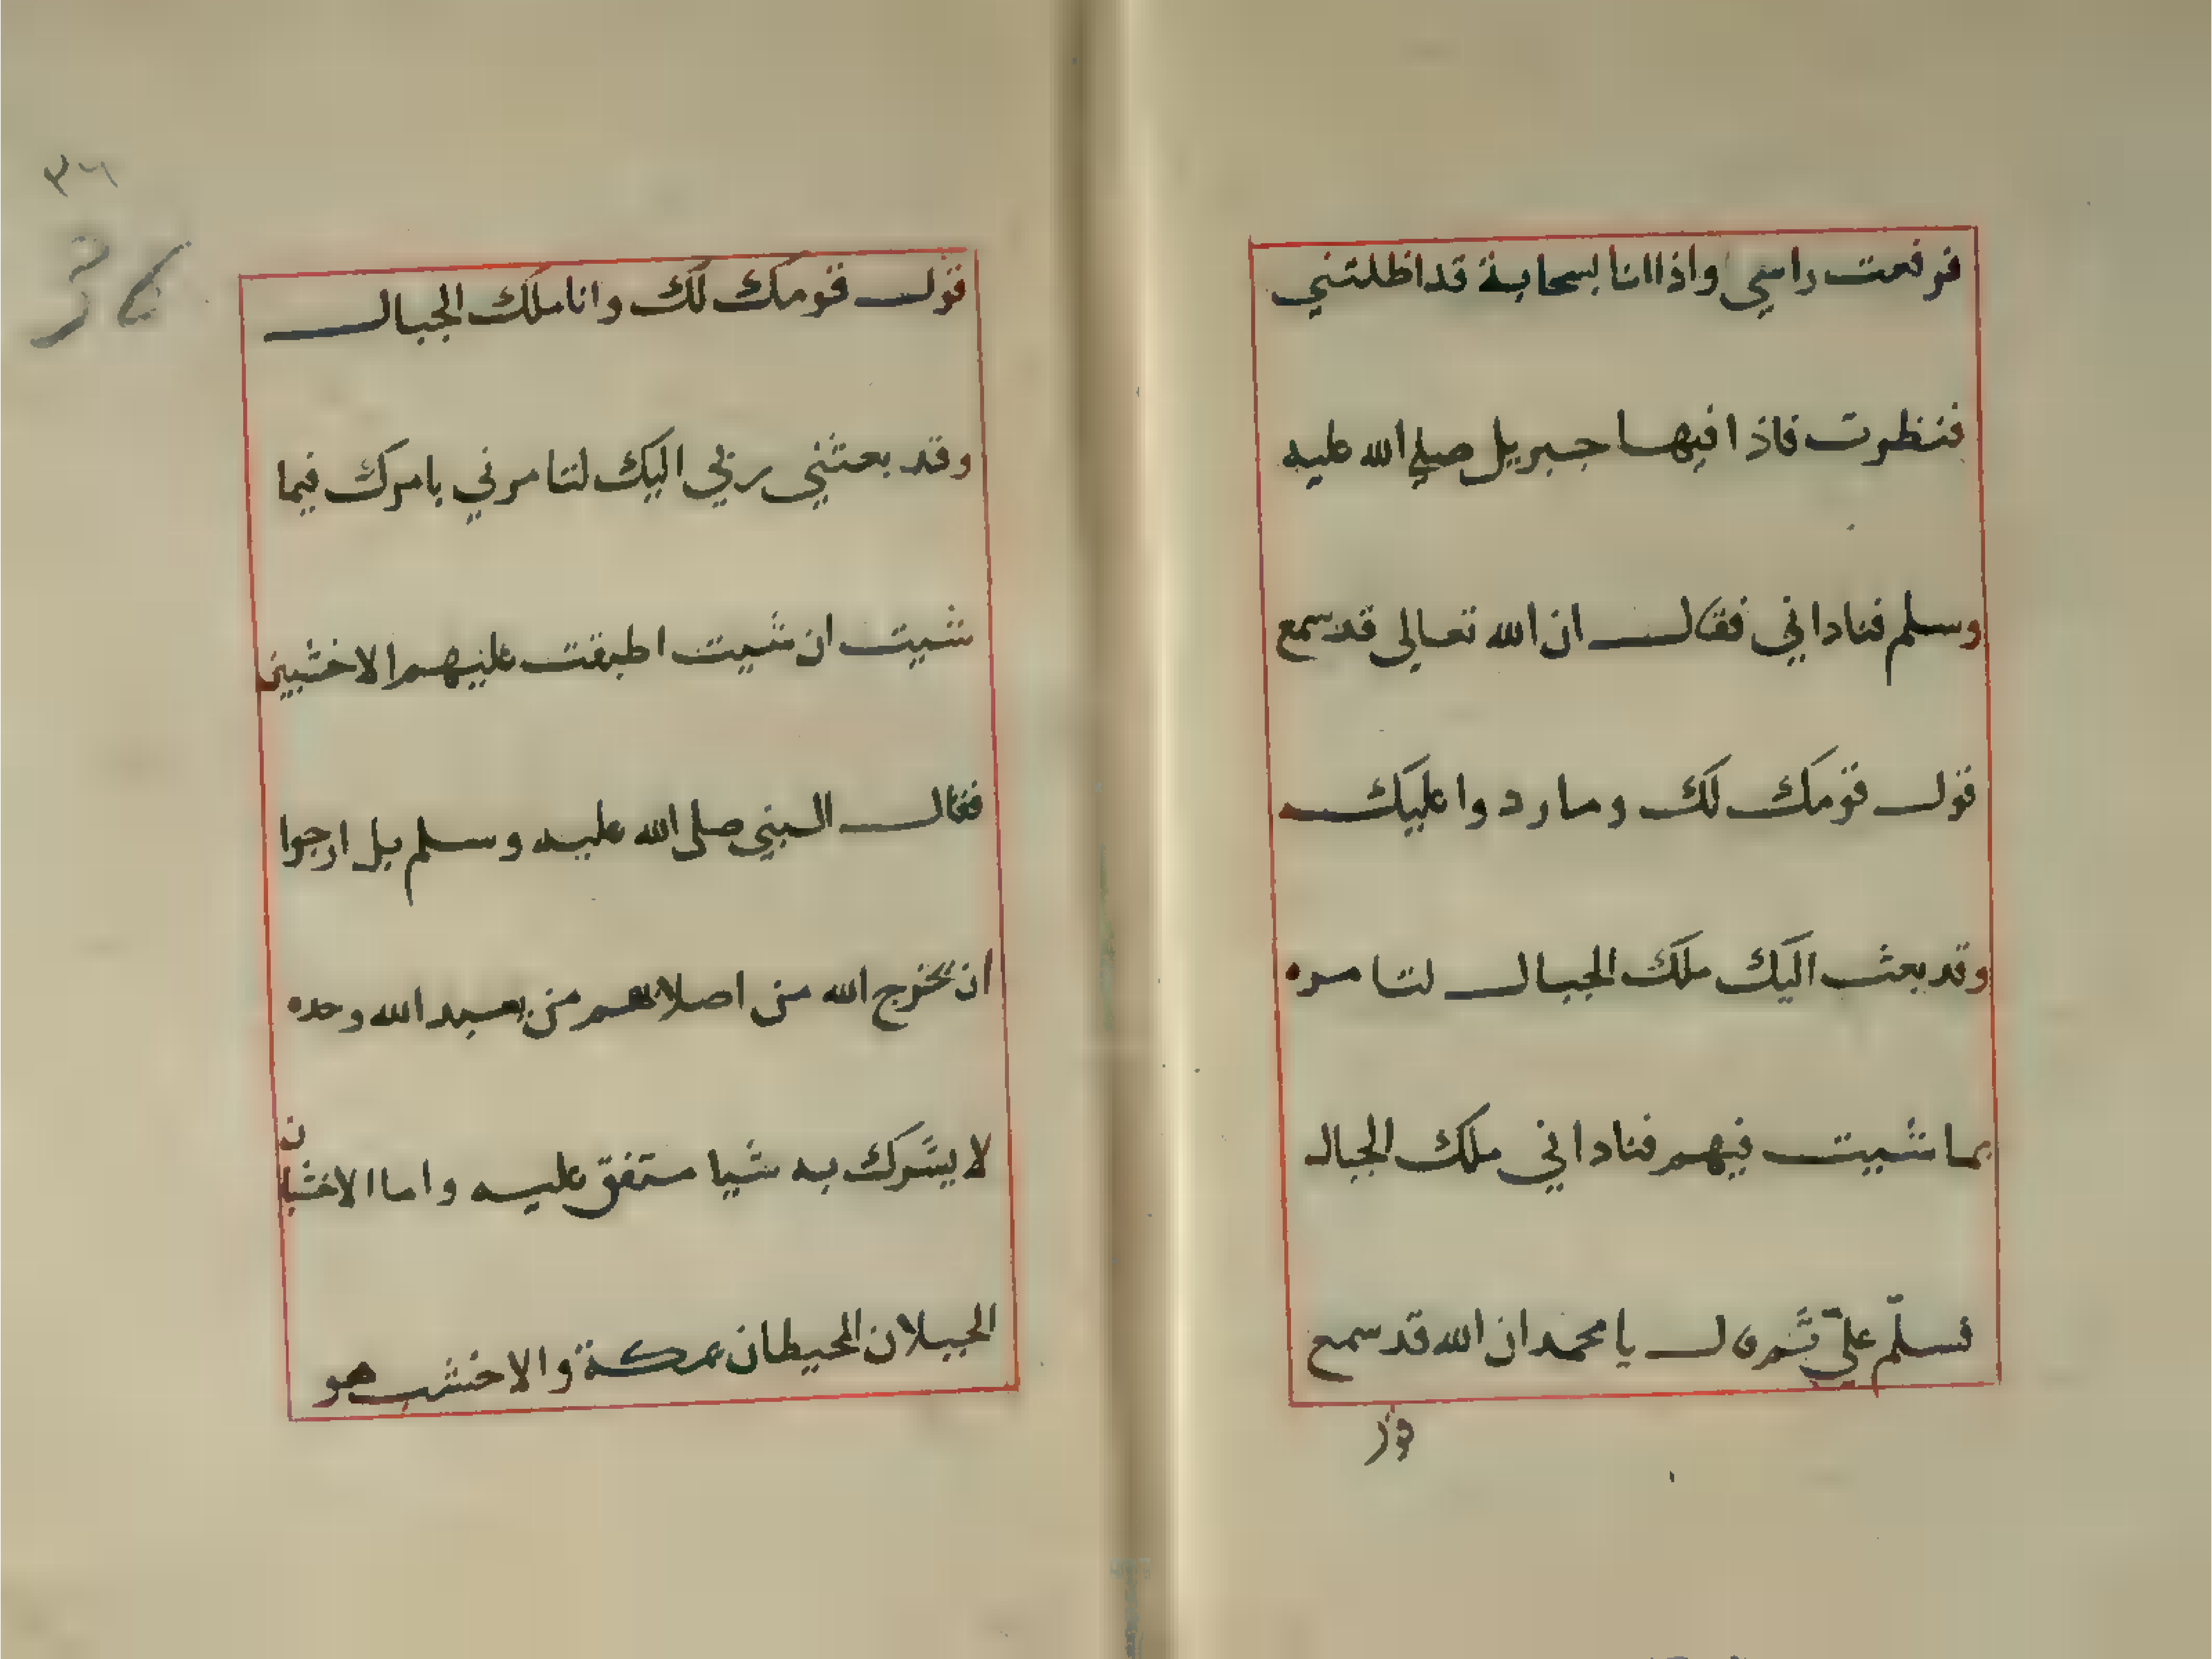 فرفعت راسي واذا انا بسحابة قد اظلتني
فنظرت فاذا فيها جبريل صلي الله عليه
وسلم فناداني فقال ان الله تعالى قد سمع
قول قومك لك وما ردوا عليك
وقد بعث اليك ملك الجبال لتامره
بما شيت فيهم فناداني ملك الجبال
فسلّم عليّ ثم قال يا محمد ان الله قد سمع
٣٦
قول قومك لك وانا ملك الجبال
وقد بعثني ربي اليك لتامرني بامرك فيما
شيت ان شيت اطبقت عليهم الاخشبين
فقال النبي صلى الله عليه وسلم بل ارجوا
ان يخرج الله من اصلابهم من يعبد الله وحده
لا يشرك به شيا متفق عليه واما الاخشبان
الجبلان المحيطان بمكة والاخشب هو